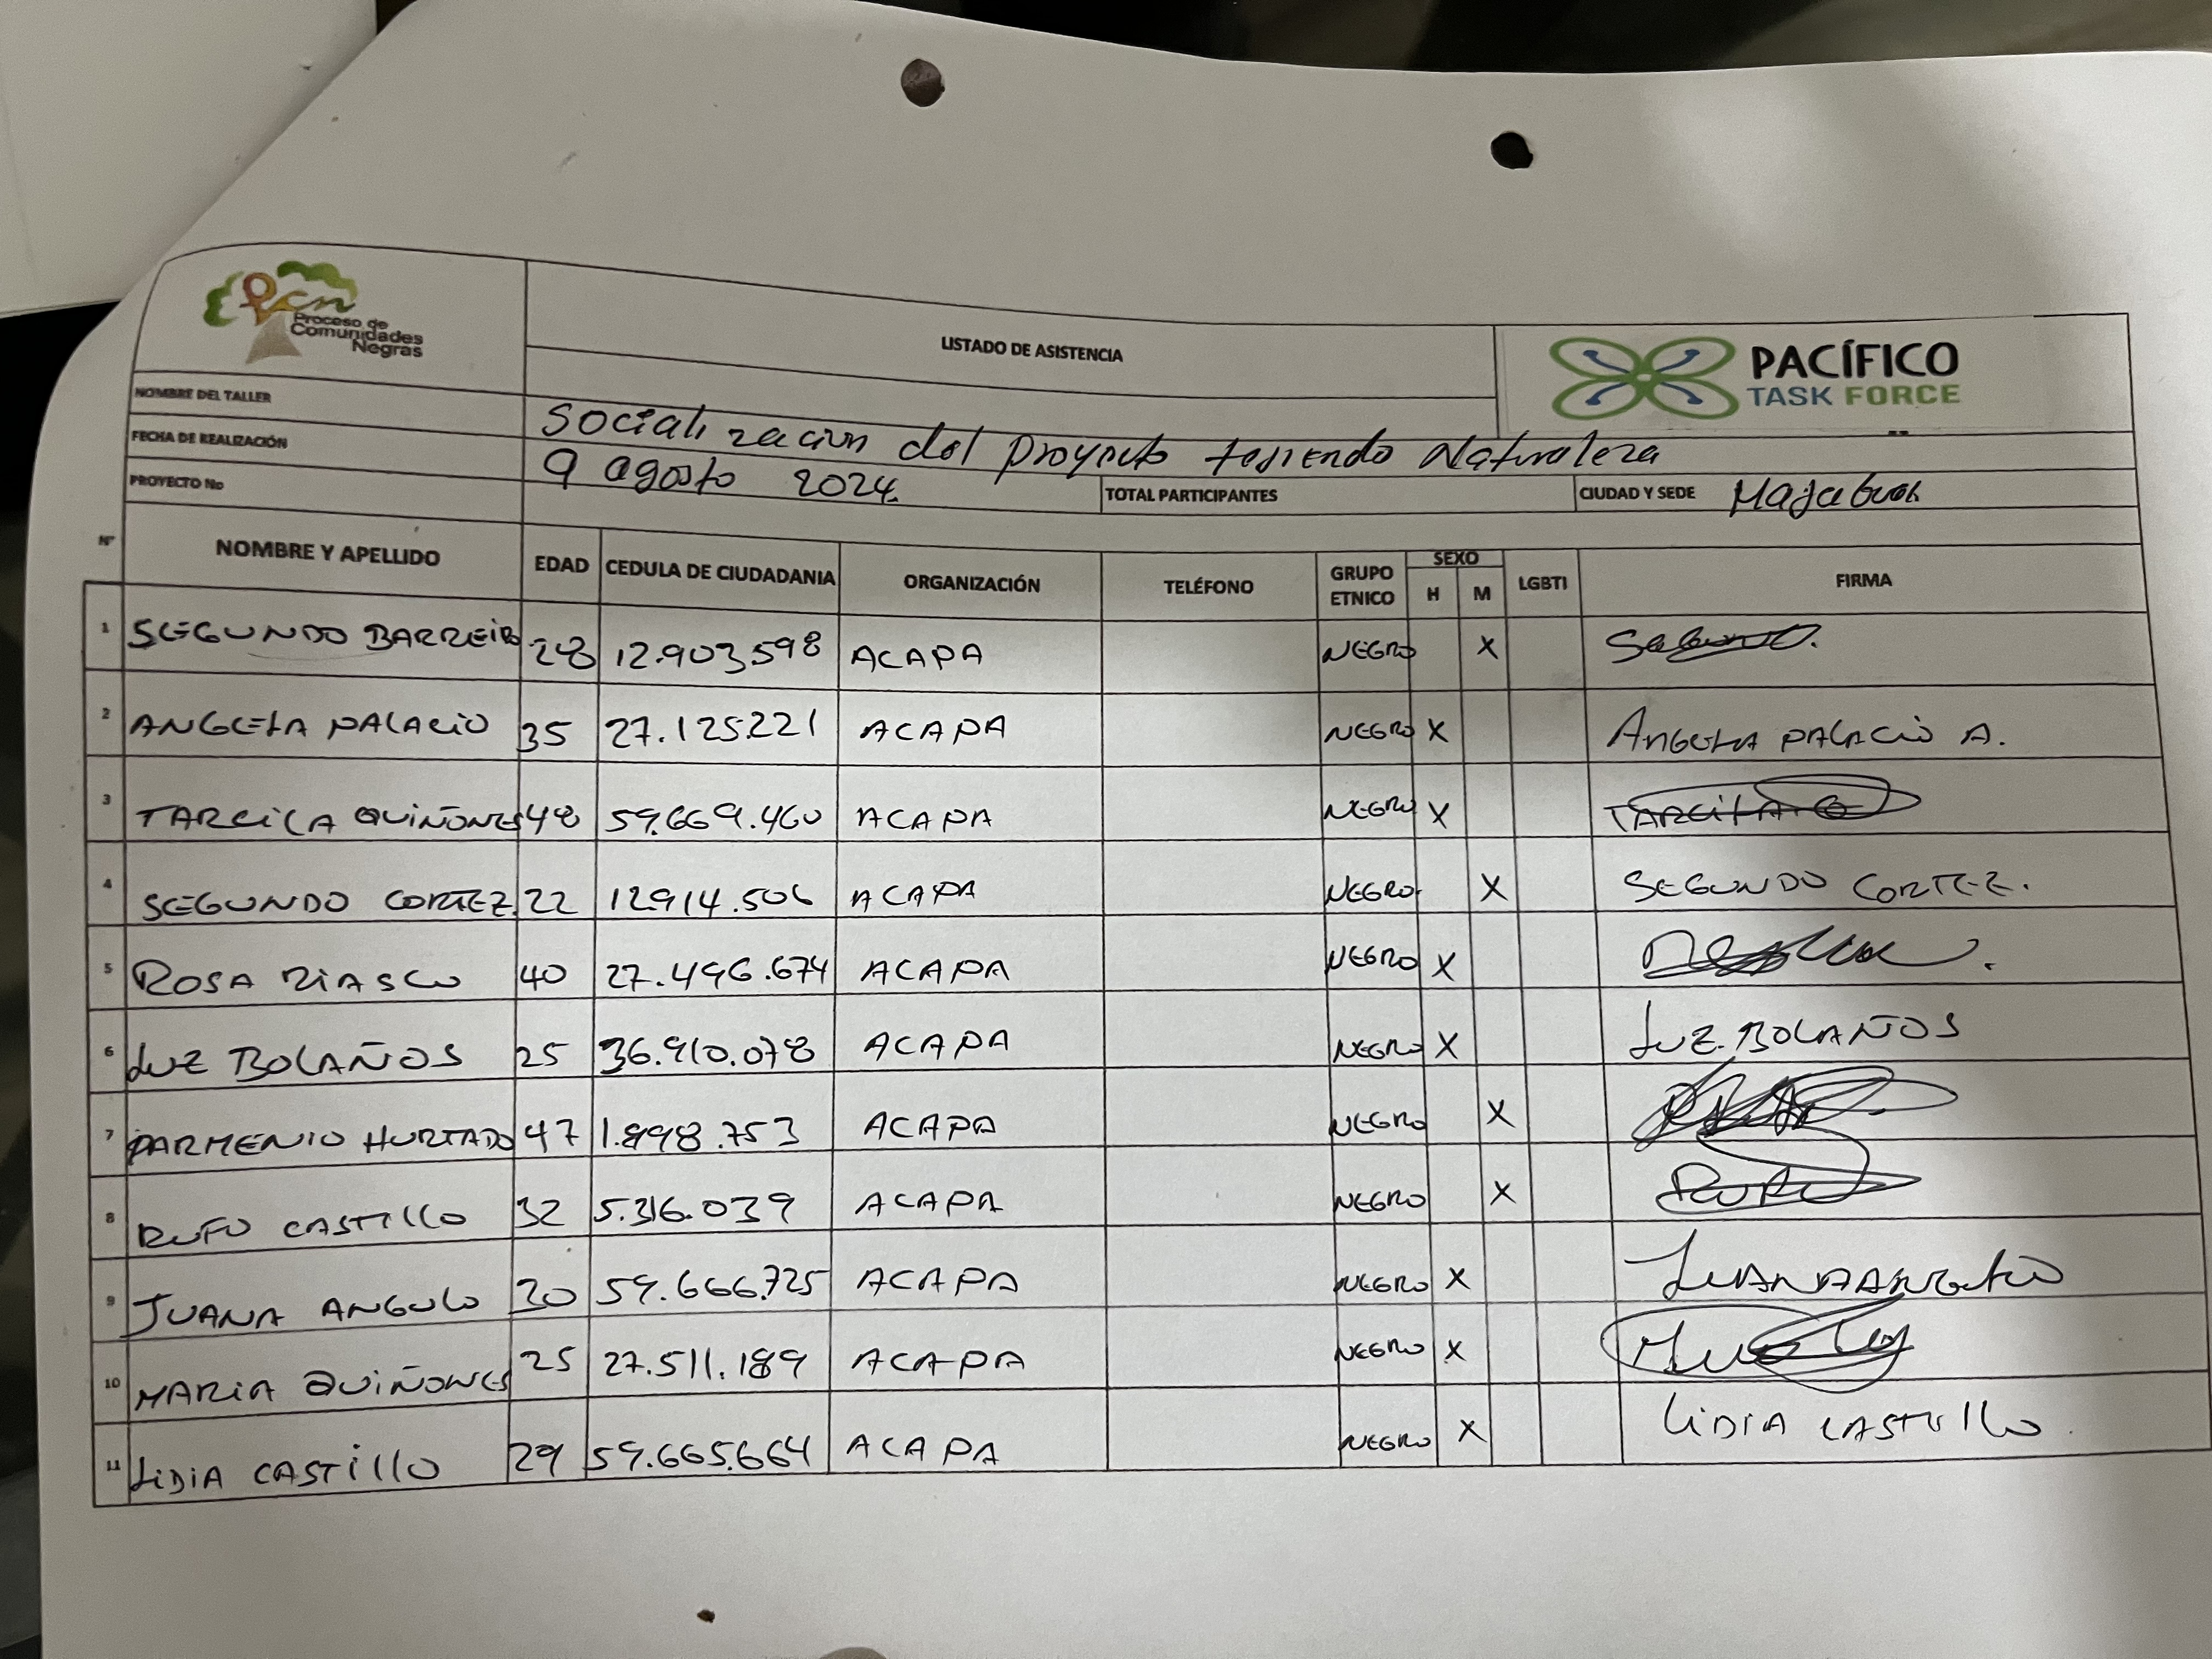 pcn
Proceso de
Comunidades
Negras
LISTADO DE ASISTENCIA
PACÍFICO
TASK FORCE
NOMBRE DEL TALLER Socialización del proyecto tejiendo Naturaleza
FECHA DE REALIZACIÓN 9 agosto 2024
PROYECTO No TOTAL PARTICIPANTES CIUDAD Y SEDE Majagual
N° NOMBRE Y APELLIDO EDAD CEDULA DE CIUDADANIA ORGANIZACIÓN TELÉFONO GRUPO ETNICO SEXO H M LGBTI FIRMA
1 SEGUNDO BARREIRO 28 12.903.598 ACAPA NEGRO X
2 ANGELA PALACIO 35 27.125.221 ACAPA NEGRO X ANGELA PALACIO A.
3 TARCILA QUIÑONES 48 59.669.460 ACAPA NEGRO X TARCILA Q
4 SEGUNDO CORTEZ 22 12914.506 ACAPA NEGRO X SEGUNDO CORTEZ.
5 ROSA RIASCO 40 27.496.674 ACAPA NEGRO X
6 LUZ BOLAÑOS 25 36.910.078 ACAPA NEGRO X LUZ BOLAÑOS
7 PARMENIO HURTADO 47 1.898.753 ACAPA NEGRO X
8 RUFO CASTILLO 32 5.316.039 ACAPA NEGRO X
9 JUANA ANGULO 30 59.666.725 ACAPA NEGRO X JUANA ANGULO
10 MARIA QUIÑONES 25 27.511.189 ACAPA NEGRO X
11 LIDIA CASTILLO 29 59.665.664 ACAPA NEGRO X LIDIA CASTILLO